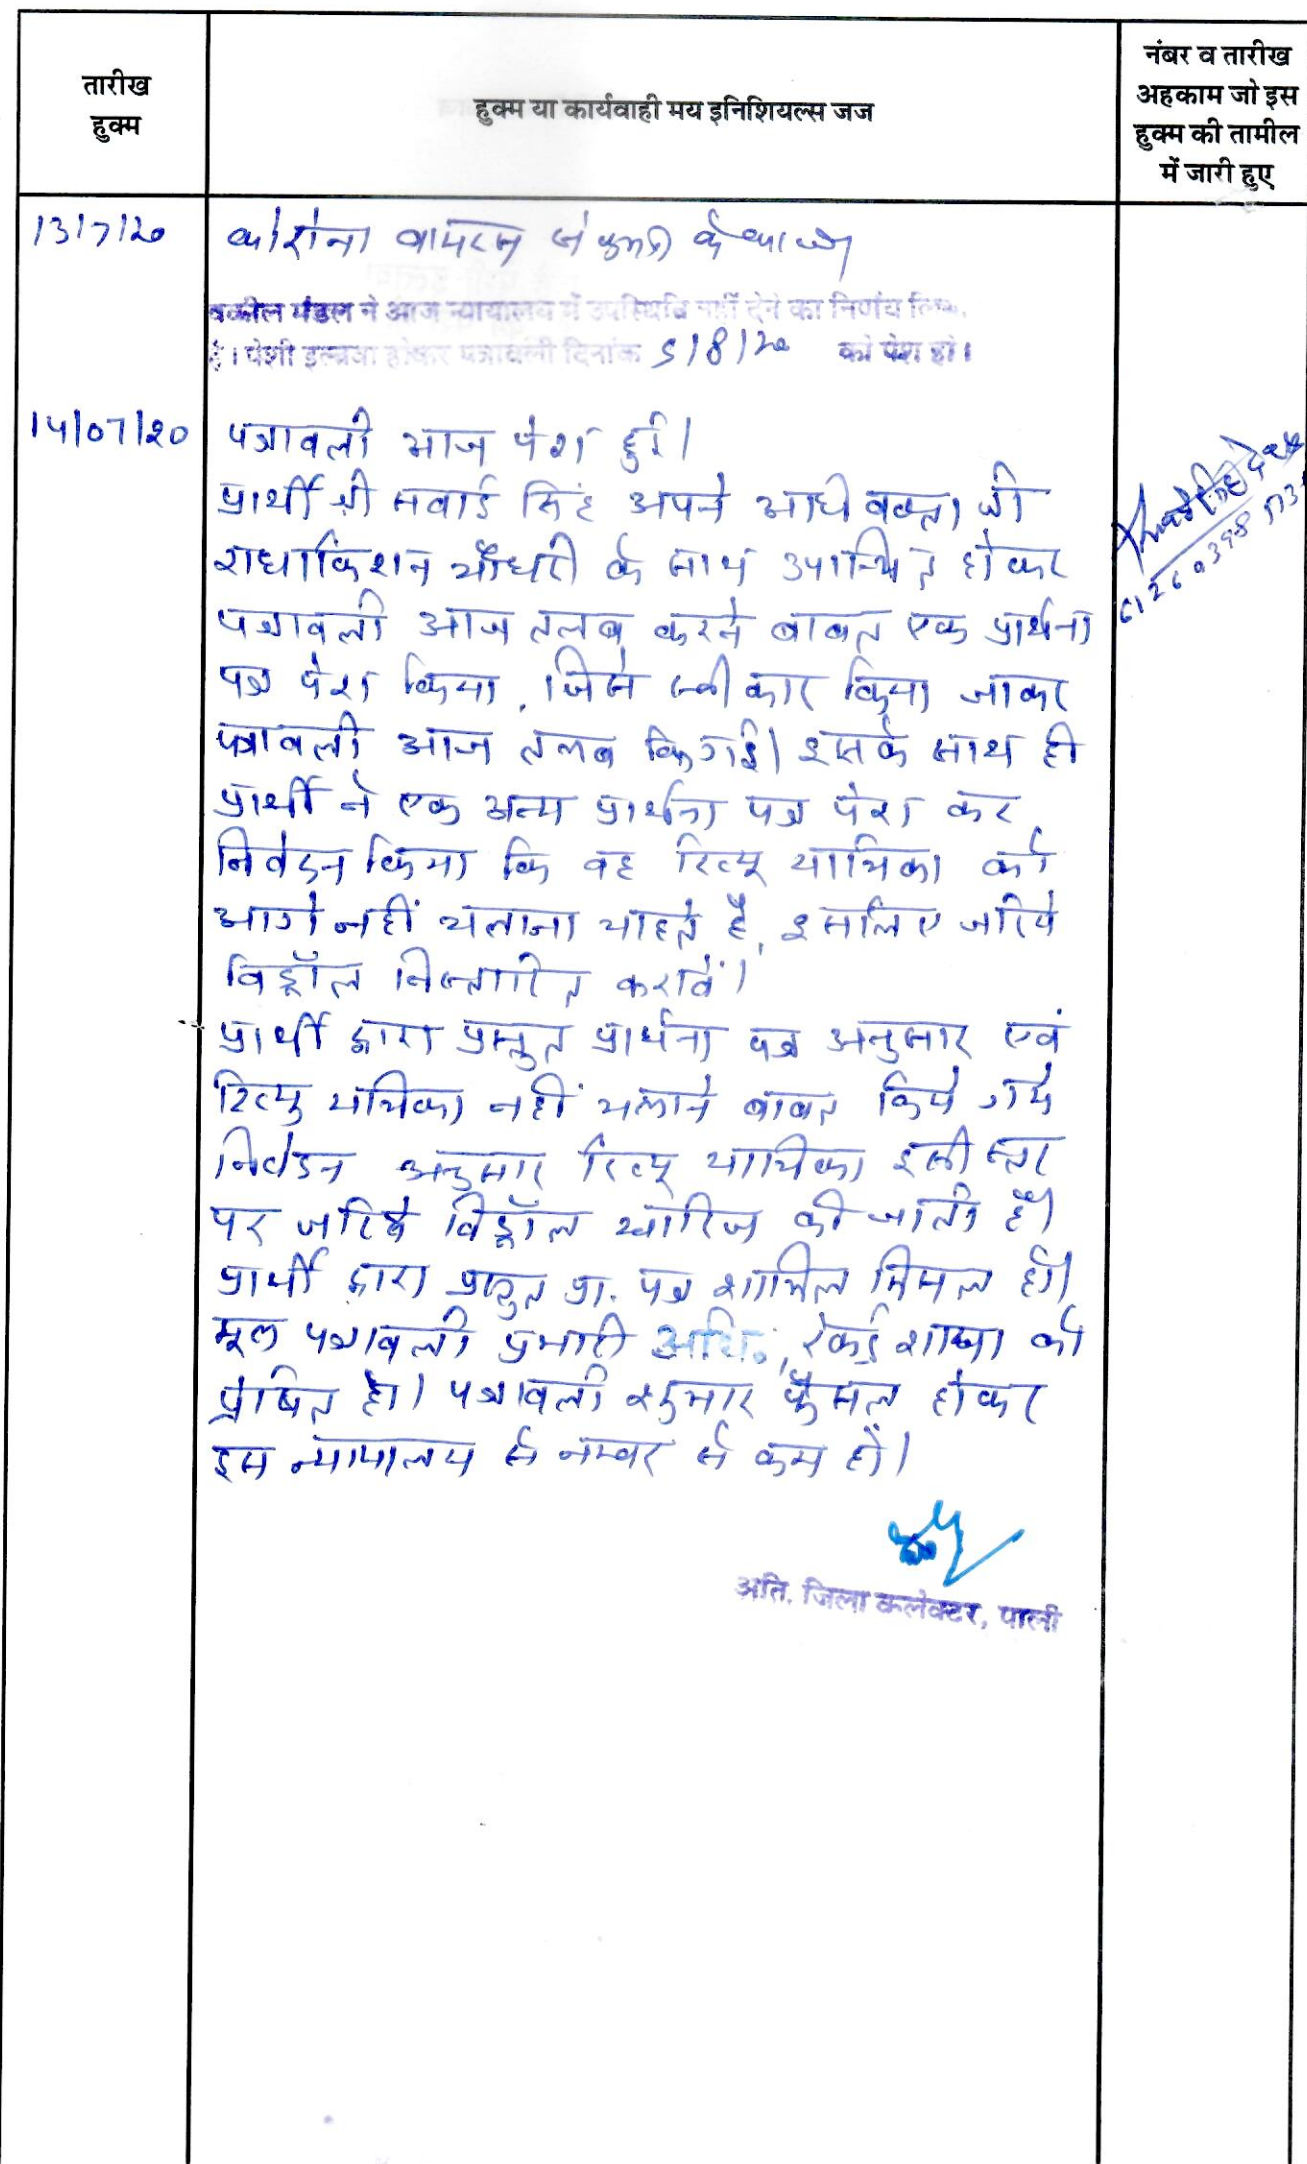 तारीख
हुक्म
हुक्म या कार्यवाही मय इनिशियल्स जज
नंबर व तारीख
अहकाम जो इस
हुक्म की तामील
में जारी हुए
13/7/20
कोरोना वायरस के कारण
वकील मंडल ने आज न्यायालय में उपस्थिति नहीं देने का निर्णय लिया
है। पेशी इल्तवा होकर पत्रावली दिनांक 5/8/20 को पेश हो।
14/07/20
पत्रावली आज पेश हुई।
प्रार्थी श्री सवाई सिंह अपने अधिवक्ता श्री
राधाकिशन चौधरी के साथ उपस्थित होकर
पत्रावली आज तलब करने बाबत एक प्रार्थना
पत्र पेश किया, जिसे स्वीकार किया जाकर
पत्रावली आज तलब कि गई। इसके साथ ही
प्रार्थी ने एक अन्य प्रार्थना पत्र पेश कर
निवेदन किया कि वह रिव्यू याचिका को
आगे नहीं चलाना चाहते है, इसलिए जरिये
विड्रॉल निस्तारित करावें।
प्रार्थी द्वारा प्रस्तुत प्रार्थना पत्र अनुसार एवं
रिव्यु याचिका नहीं चलाने बाबत किये गये
निवेदन अनुसार रिव्यू याचिका इसी स्तर
पर जरिये विड्रॉल खारिज की जाती है।
प्रार्थी द्वारा प्रस्तुत प्रा. पत्र शामिल मिसल हो।
मूल पत्रावली प्रभारी अधि., रेकर्ड शाखा को
प्रेषित हो। पत्रावली शुमार फैसल होकर
इस न्यायालय से नम्बर से कम हो।
अति. जिला कलेक्टर, पाली